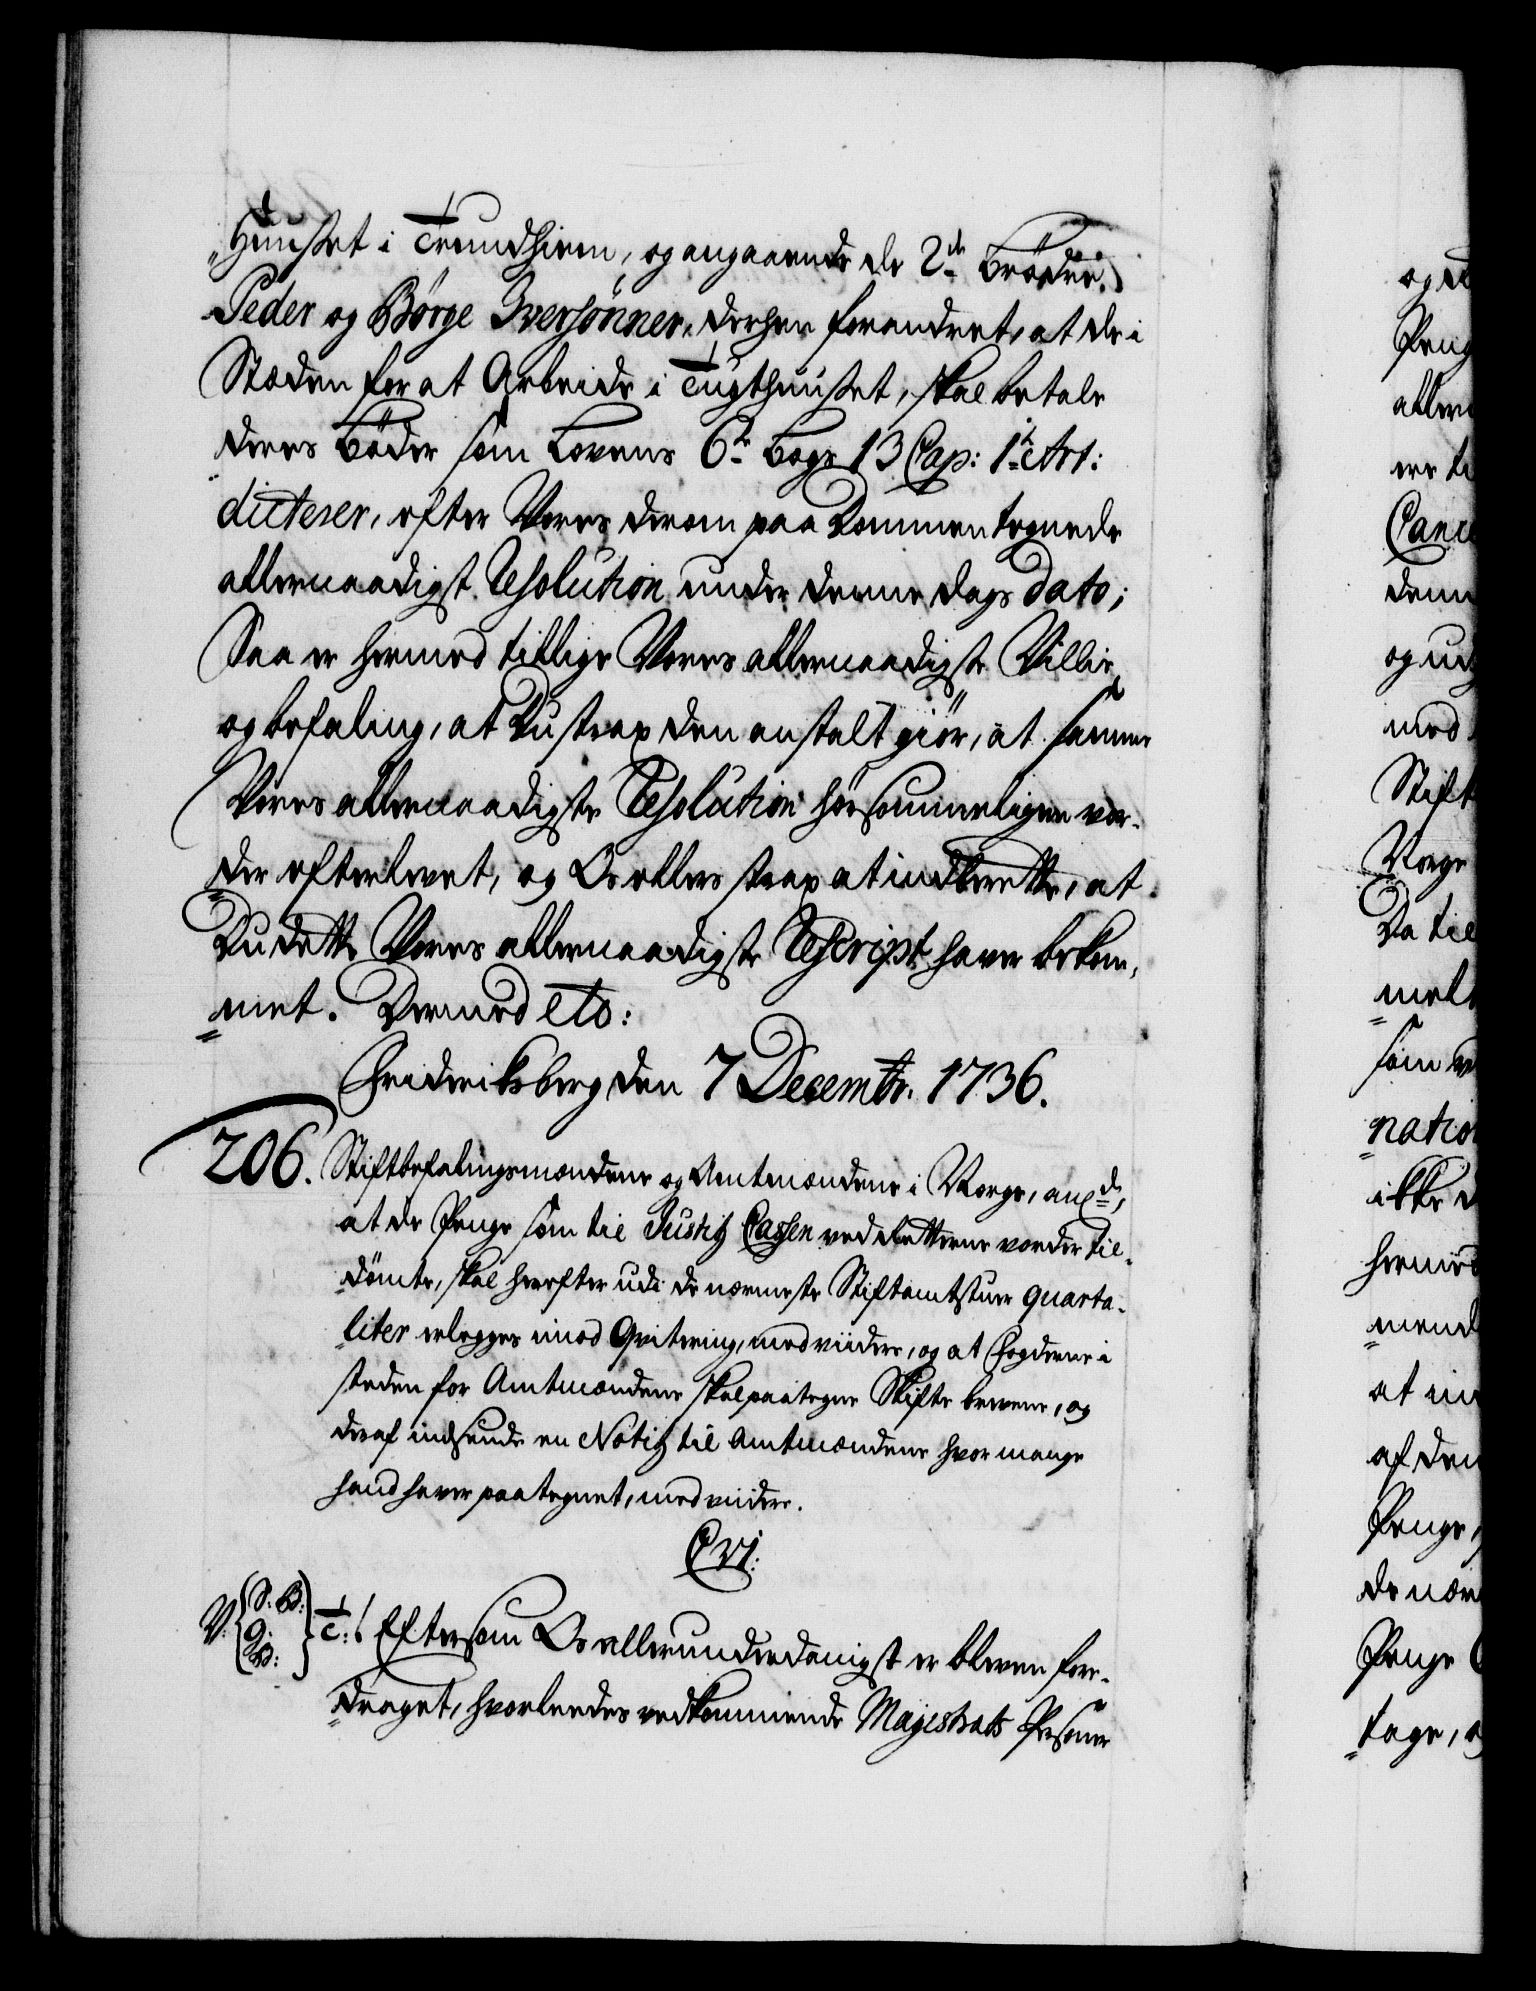 Huuset i Trundhiem, og angaaende de 2de Brödre,
Peder og Børge Iversønner, derhen forandret, at de i
Stæden for at Arbeide i Tugthuuset, skal betale
deres Böder som Lovens 6te Bogs 13 Cap: 1te Art:
dicterer, efter Vores derom paa Dommen tegnede
allernaadigst Resolution under denne Dags dato;
Saa er hermed tillige Vores allernaadigste Villie
og befaling, at Du strax den anstalt giör, at samme
Vores allernaadigste Resolution hörsommeligen vor-
der efterlevet, og Os ellers strax at indberette, at
Du dette Vores allernaadigste Rescript haver bekom-
met. Dermed etc:
Friderichsberg den 7 Decembr. 1736.
206. Stiftbefalingsmændene og Amtmændene i Norge, anl:de,
at de Penge som til Justitz Cassen ved Retterne vorder til-
dömte, skal herefter udi de nærmeste Stiftamtstuer quarta-
liter erlegges imod Qvitering, med viidere, og at Fogderne i
steden for Amtmændene skal paategne Skifte brevene, og
deraf indsende en Notitz til Amtmændene hvor mange
hand haver paategnet, med viidere.
C VI.
V: {S. B: G: B:} T. C:! Eftersom Os allerunderdanigst er bleven fore-
draget, hvorledes vedkommende Magistrats Persone
og
Peng
aller
ere ti
Canc
denn
og ud
med
Stift
Norge
Da til
melt
som
natio
ikke
hermed
mend
at
af den
Penge
de nær
Penge
tage,